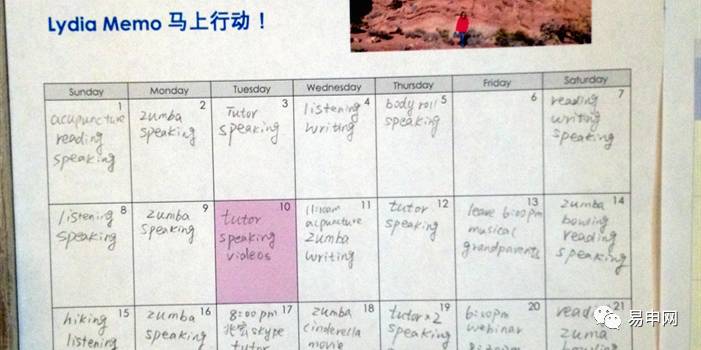 Lydia Memo 马上行动！
Sunday Monday Tuesday Wednesday Thursday Friday Saturday
1 2 3 4 5 6 7
acupuncture zumba Tutor listening body roll reading
reading speaking speaking writing speaking writing
speaking speaking
8 9 10 11 12 13 14
listening zumba tutor 11:00am tutor leave 6:00pm zumba
speaking speaking speaking acupuncture speaking musical bowing
videos zumba grandparents reading
writing speaking
15 16 17 18 19 20 21
hiking zumba 8:00pm zumba tutor×2 6:00pm
listening speaking skype cinderella speaking webinar zuma
tutor movie
易申网